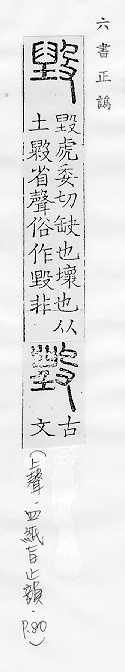 六書正譌
毀
毀虎委切缺也壞也从
土毇省聲俗作毁非
古
文
(上聲·四紙旨止韻·P.80)